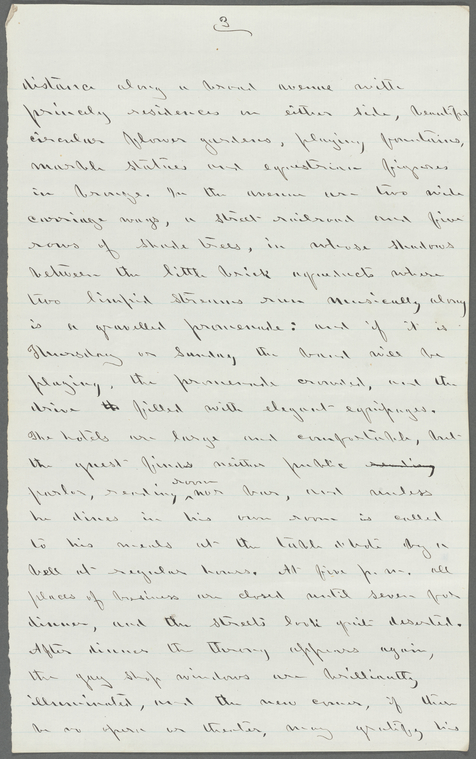 3
distance along a broad avenue with
princely residences on either side, beautiful
circular flower gardens, playing fountains,
marble statues and equestrian figures
in bronze. In the avenue are two wide
carriage ways, a street railroad and five
rows of shade trees, in whose shadows
between the little brick aqueducts where
two limpid streams run musically along
is a gravelled promenade: and if it is
Thursday or Sunday the band will be
playing, the promenade crowded, and the
drive th filled with elegant equipages.
The hotels are large and comfortable, but
the guest finds neither public reading
parlor, reading room nor bar, and unless
he dines in his own room is called
to his meals at the table d'hote by a
bell at regular hours. At five p.m. all
places of business are closed until seven for
dinner, and the streets look quite deserted.
After dinner the throng appears again,
the gay shop windows are brilliantly
illuminated, and the new comer, if there
be no opera or theater, may gratify his